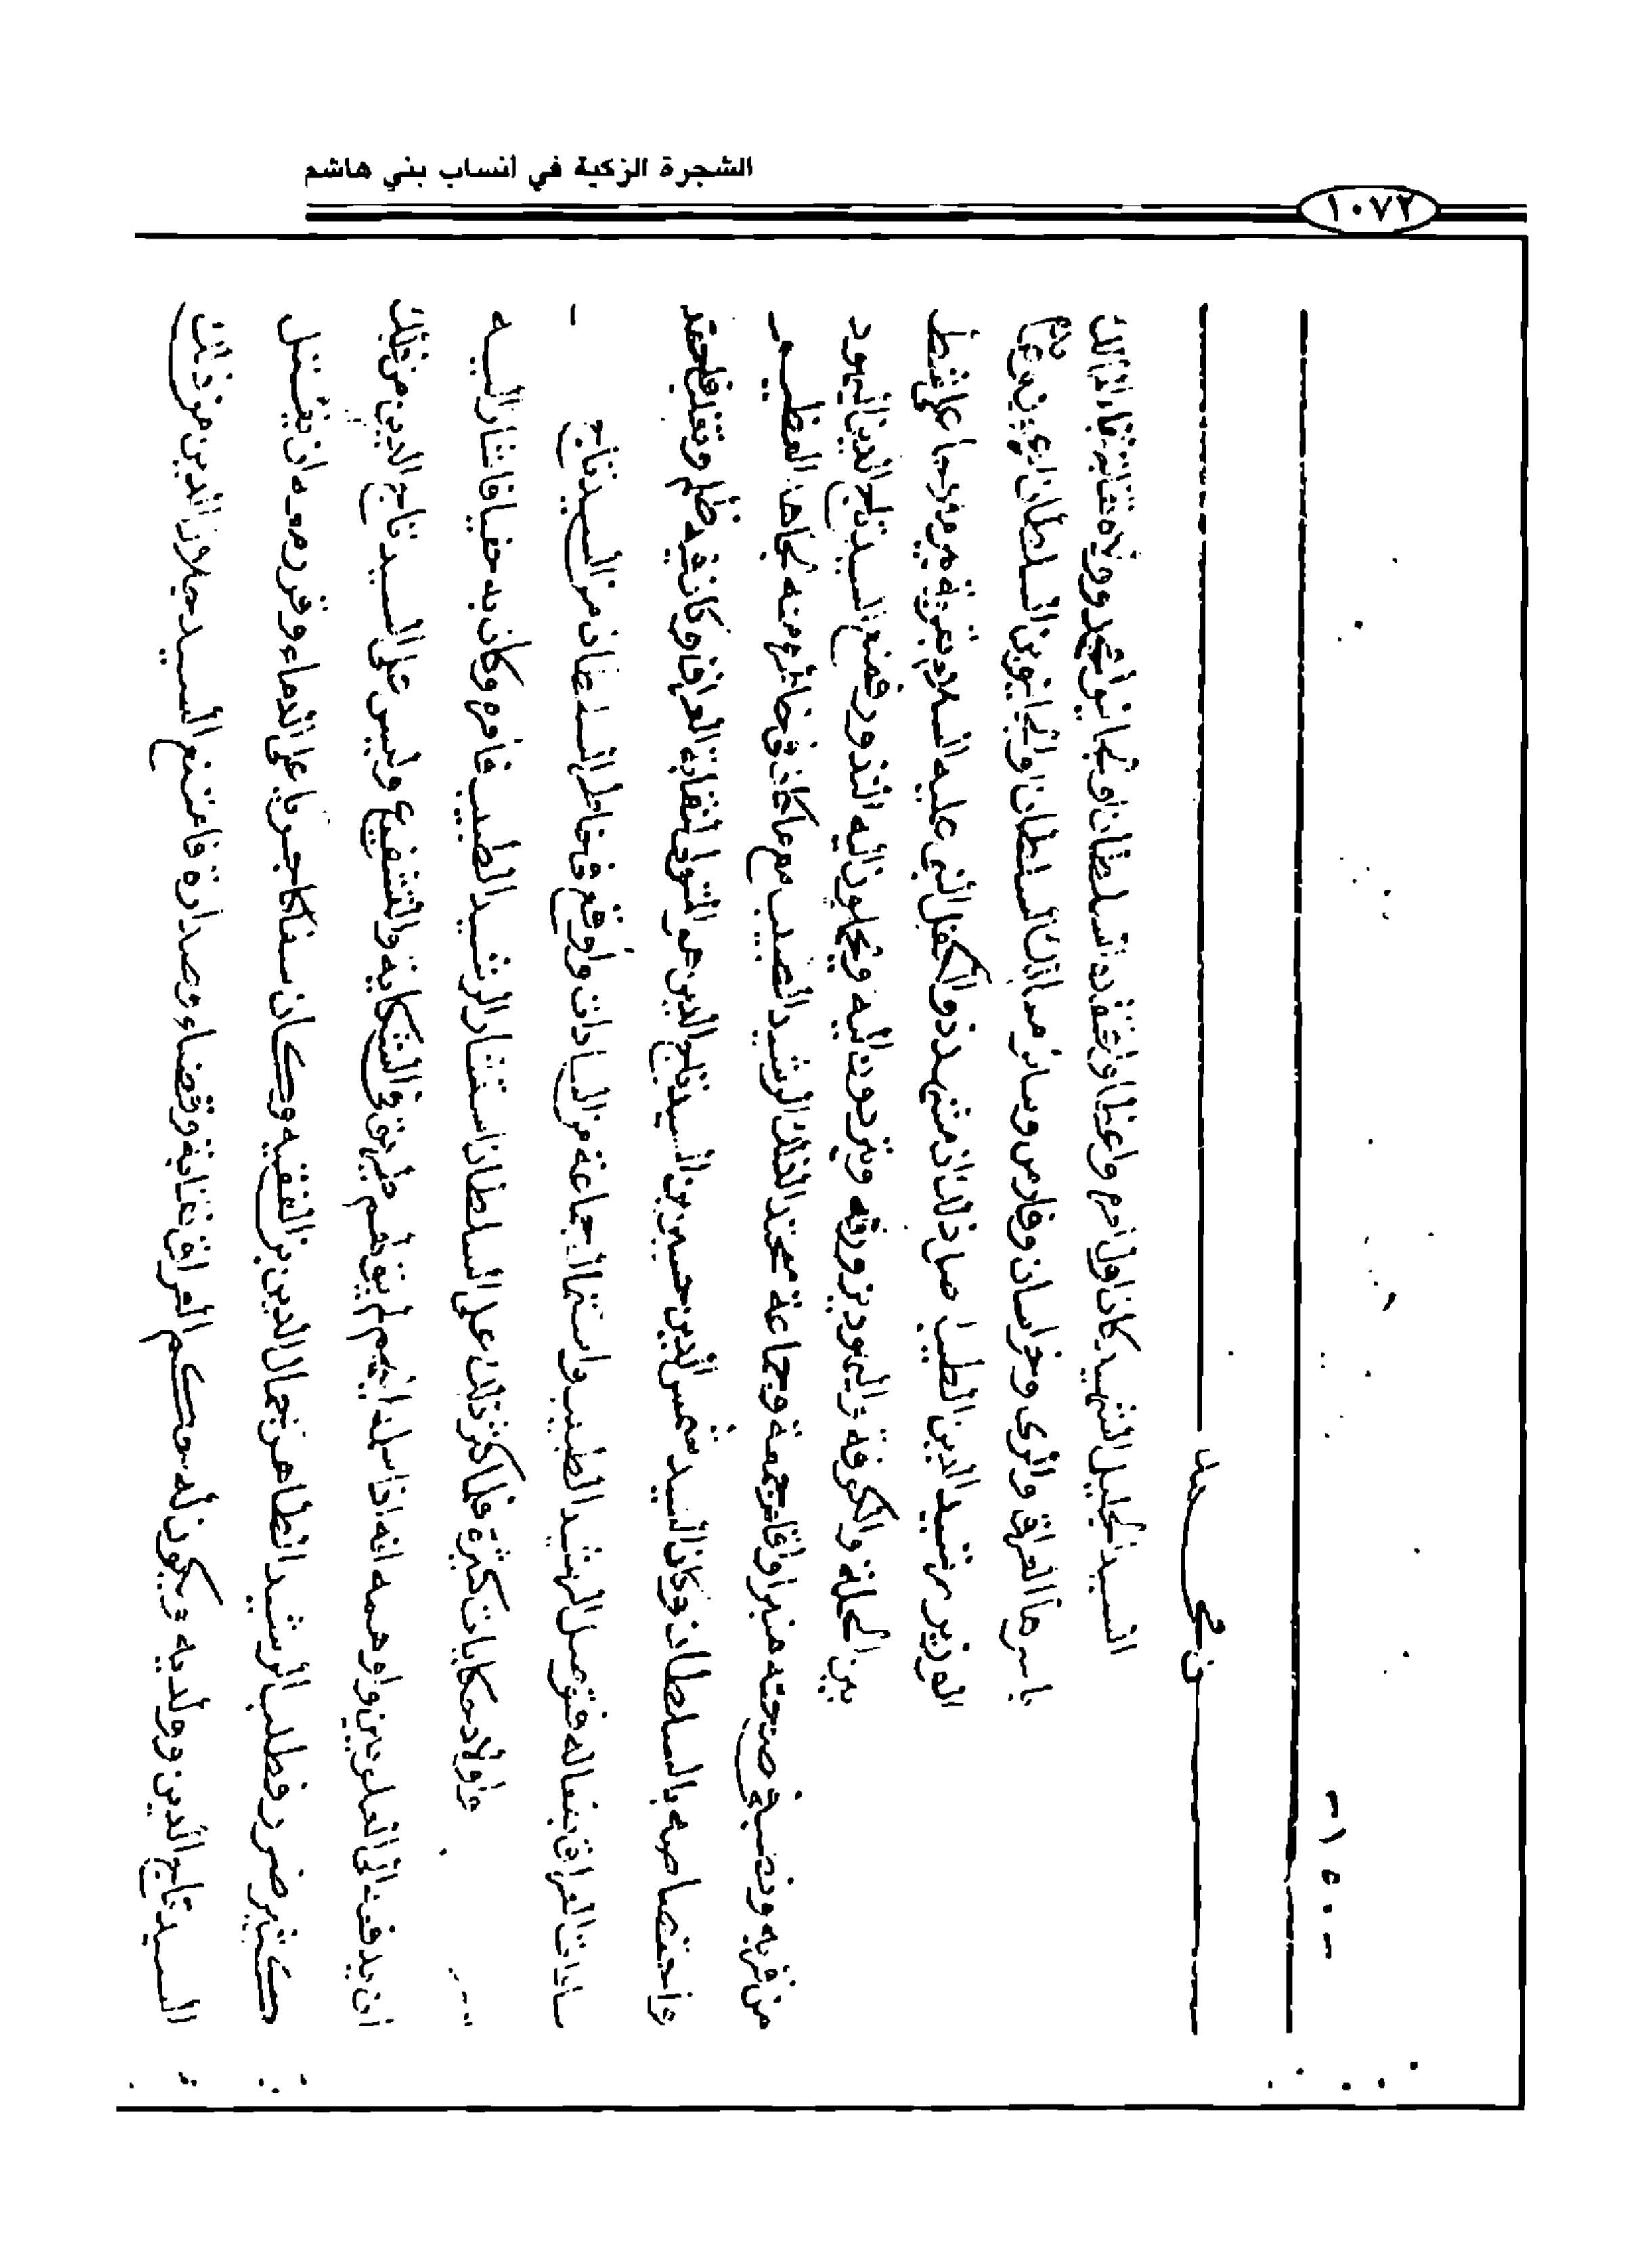 الشجرة الزكية في أنساب بني هاشم
١٠٧٢
- ١٥٠ -
السيد الجليل الشهيد كان اول امره واعظا واعتقده السلطان اولجايتو محمد وولاه نقابة نقباء الممالك
باسرها العراق والري وخراسان وفارس وسائر ممالك السلطان اولجايتو بن السلطان
الوزير رشيد الدين الطبيب ذلك ان مشهد ذو الكفل النبي عليه السلام بقرية على شط
بين الحلة والكوفة واليهود يزورونه ويترددون اليه ويحملون اليه النذور فمنع السيد تاج الدين اليهود
من قربه ونصب في صبحته منبرا واقام جمعة وجماعة فحقد لذلك الرشيد الطبيب مع ما كان في خاطره منه بجاهه العظيم
واختصاصه بالسلطان وكان السيد شمس الدين حسين بن السيد تاج الدين هو المتولي لنقابة العراق وكان فيه ظلم وتغلب فاحقد
سادات العراق بفعاله فتوصل الرشيد الطبيب واستمال جماعة من السادات واوقع في خاطر السلطان من السيد تاج
واولاد حكايات كثيرة فلما كثر ذلك على السلطان استشار الرشيد الطبيب في امره وكان به حفيا فاشار اليه
ان يدفعه الى العلويين واوهمه انه اذا سلمه اليهم لم يبق لهم طريق في الشكاية والتشنيع وليس على السيد تاج الدين من ذلك
كثير ضرر فطلب الرشيد الطاهر جمال الدين بن الفقيه وكان سفاكا جريا على الدماء وقرر معه ان يقتل
السيد تاج الدين وولديه ويكون له حكم العراق نقابة وقضاء وصدارة فامتنع السيد جلال الدين من ذلك